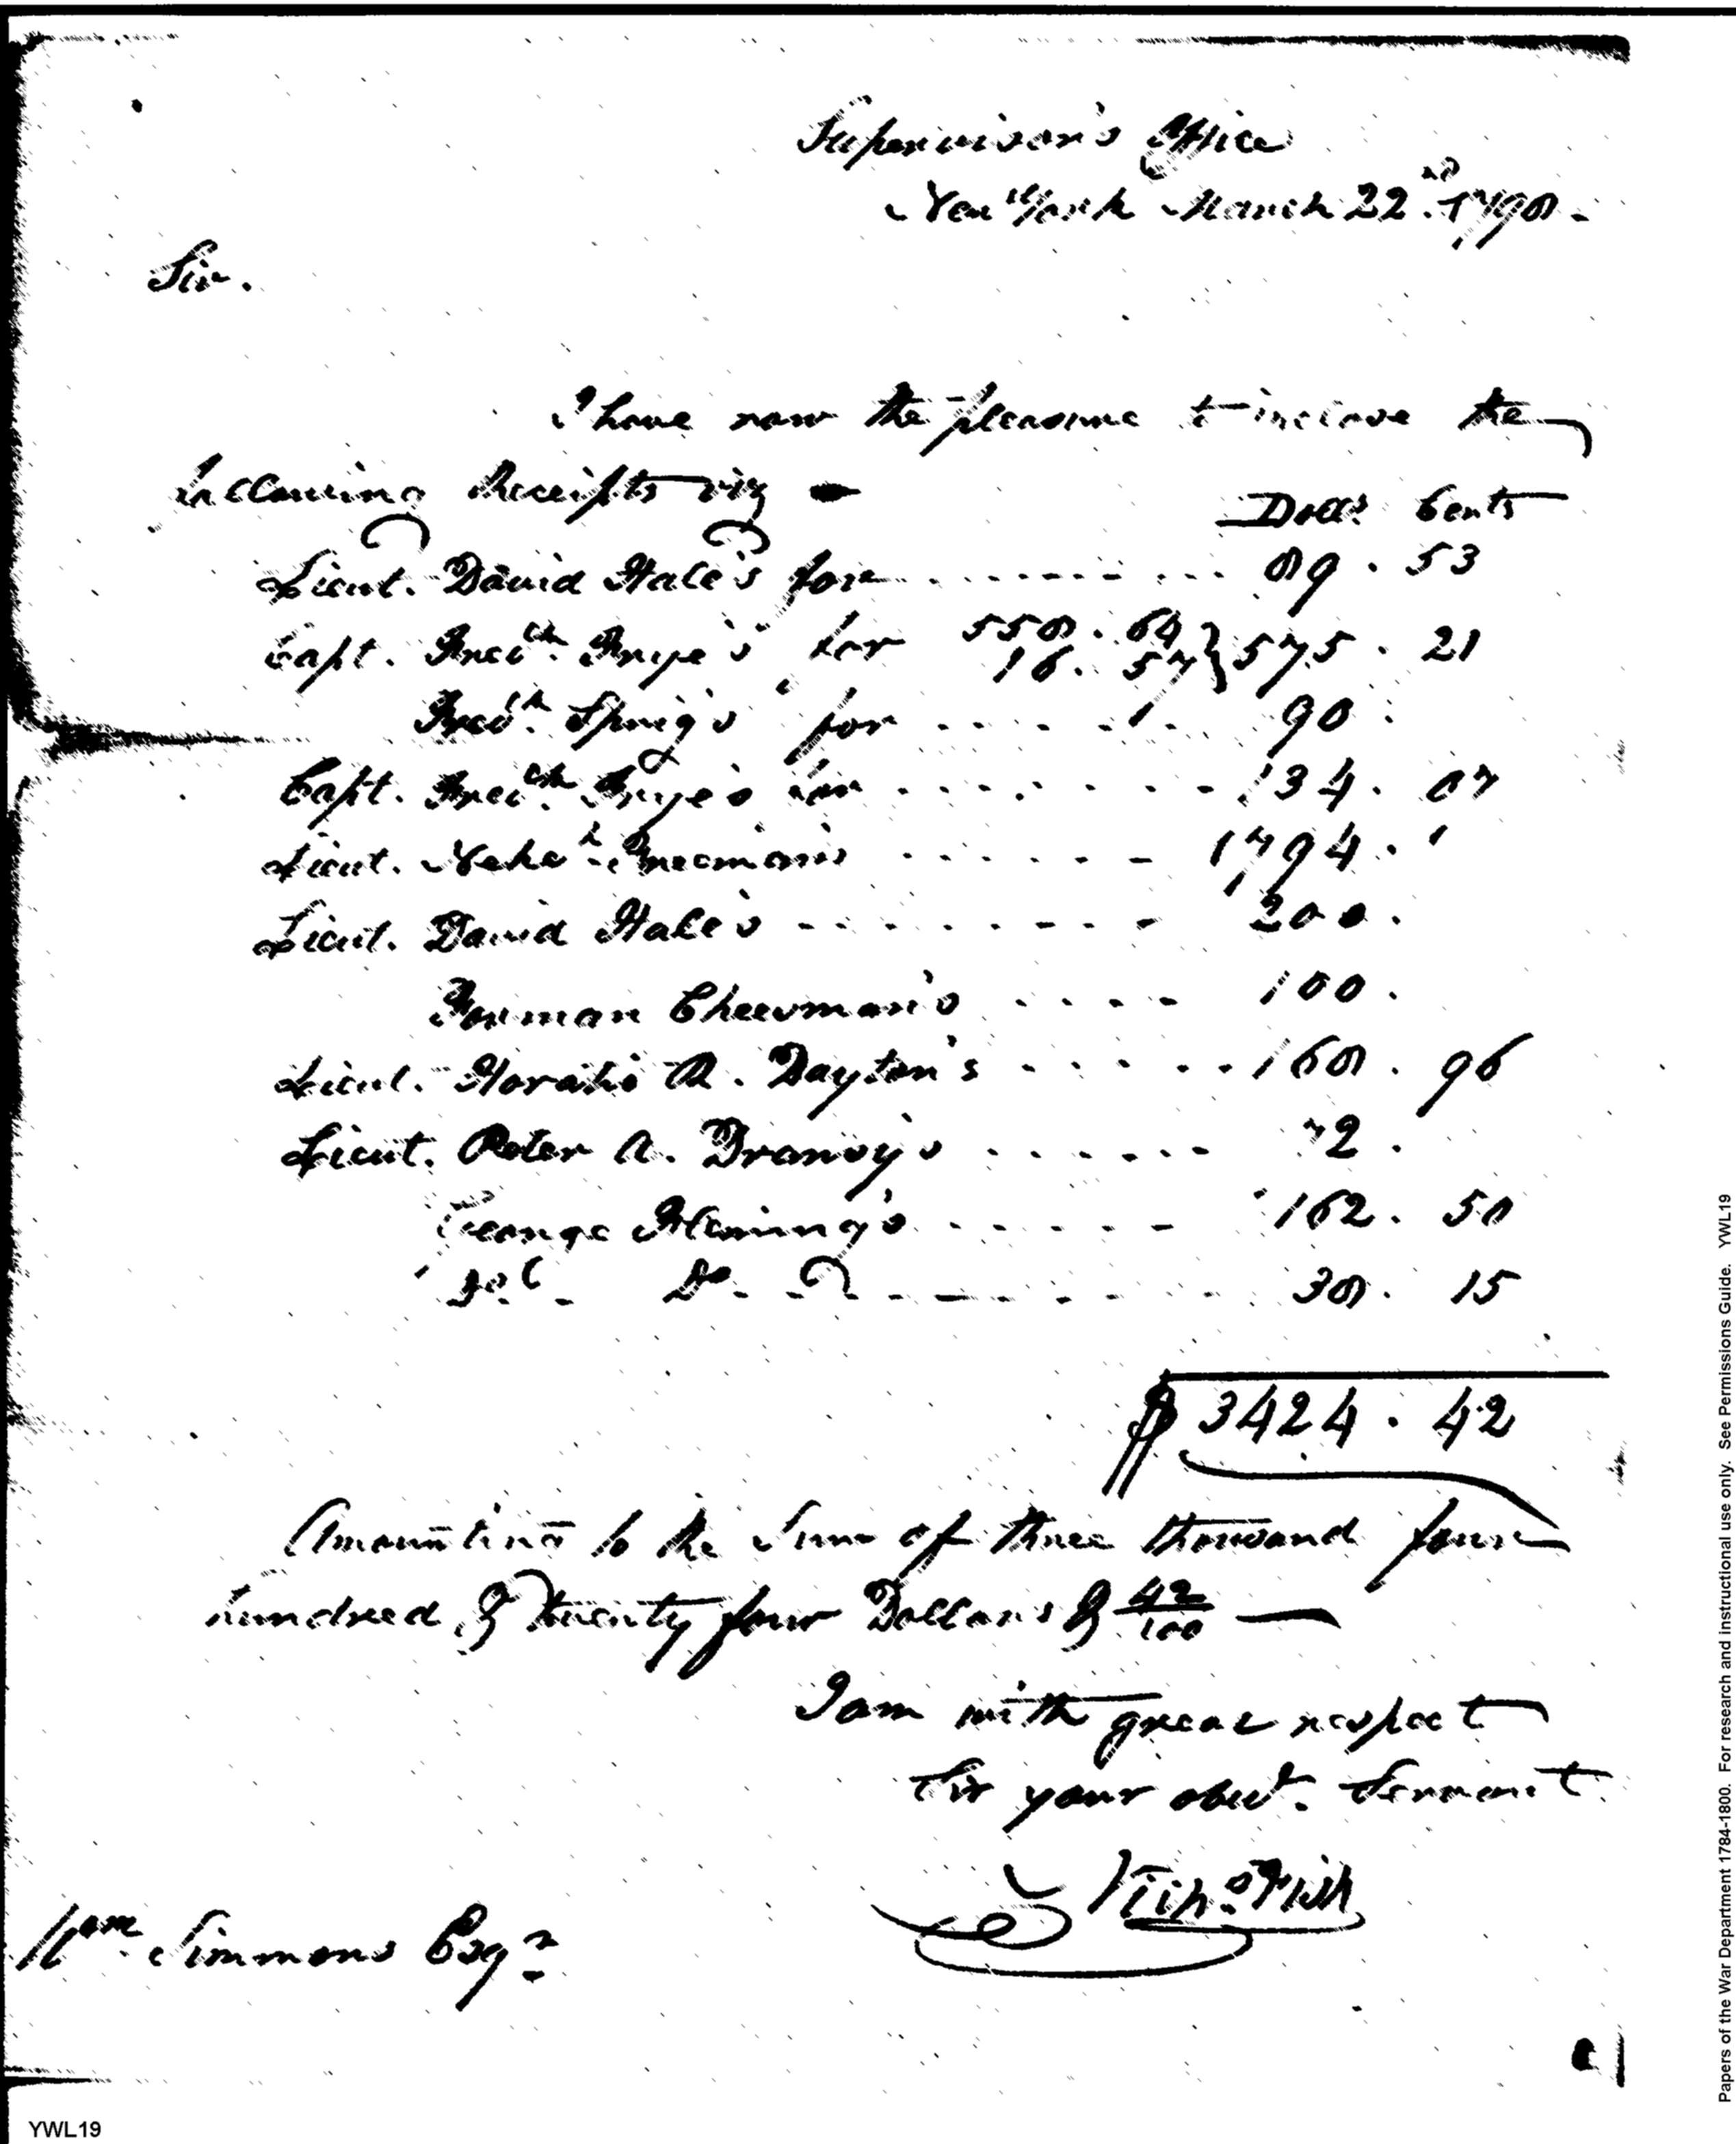 Supervisor's Office
New York March 22nd 1798.
Sir.
I have now the pleasure to inclose the
following Receipts viz
Dolls. Cents
Lieut. David Hale's for 89. 53
Capt. Fredck. Frye's for 558. 64 } 575. 21
16. 57
Fredk. Sprig's for 90.
Capt. Fredck. Frye's for 134. 07
Lieut. Nehe. Freeman's 1794.
Lieut. David Hale's 200.
Forman Cheesman's 100.
Lieut. Horatio R. Dayton's 168. 96
Lieut. Peter A. Dransy's 72.
George Fleming's 162. 50
Do. 38. 15
$ 3424. 42
Amounting to the Sum of three thousand four
hundred & twenty four Dollars & 42/100
I am with great respect
Sir your obedt. Servant
Nichs. Fish
Wm. Simmons Esqr.
YWL19
Papers of the War Department 1784-1800. For research and instructional use only. See Permissions Guide. YWL19